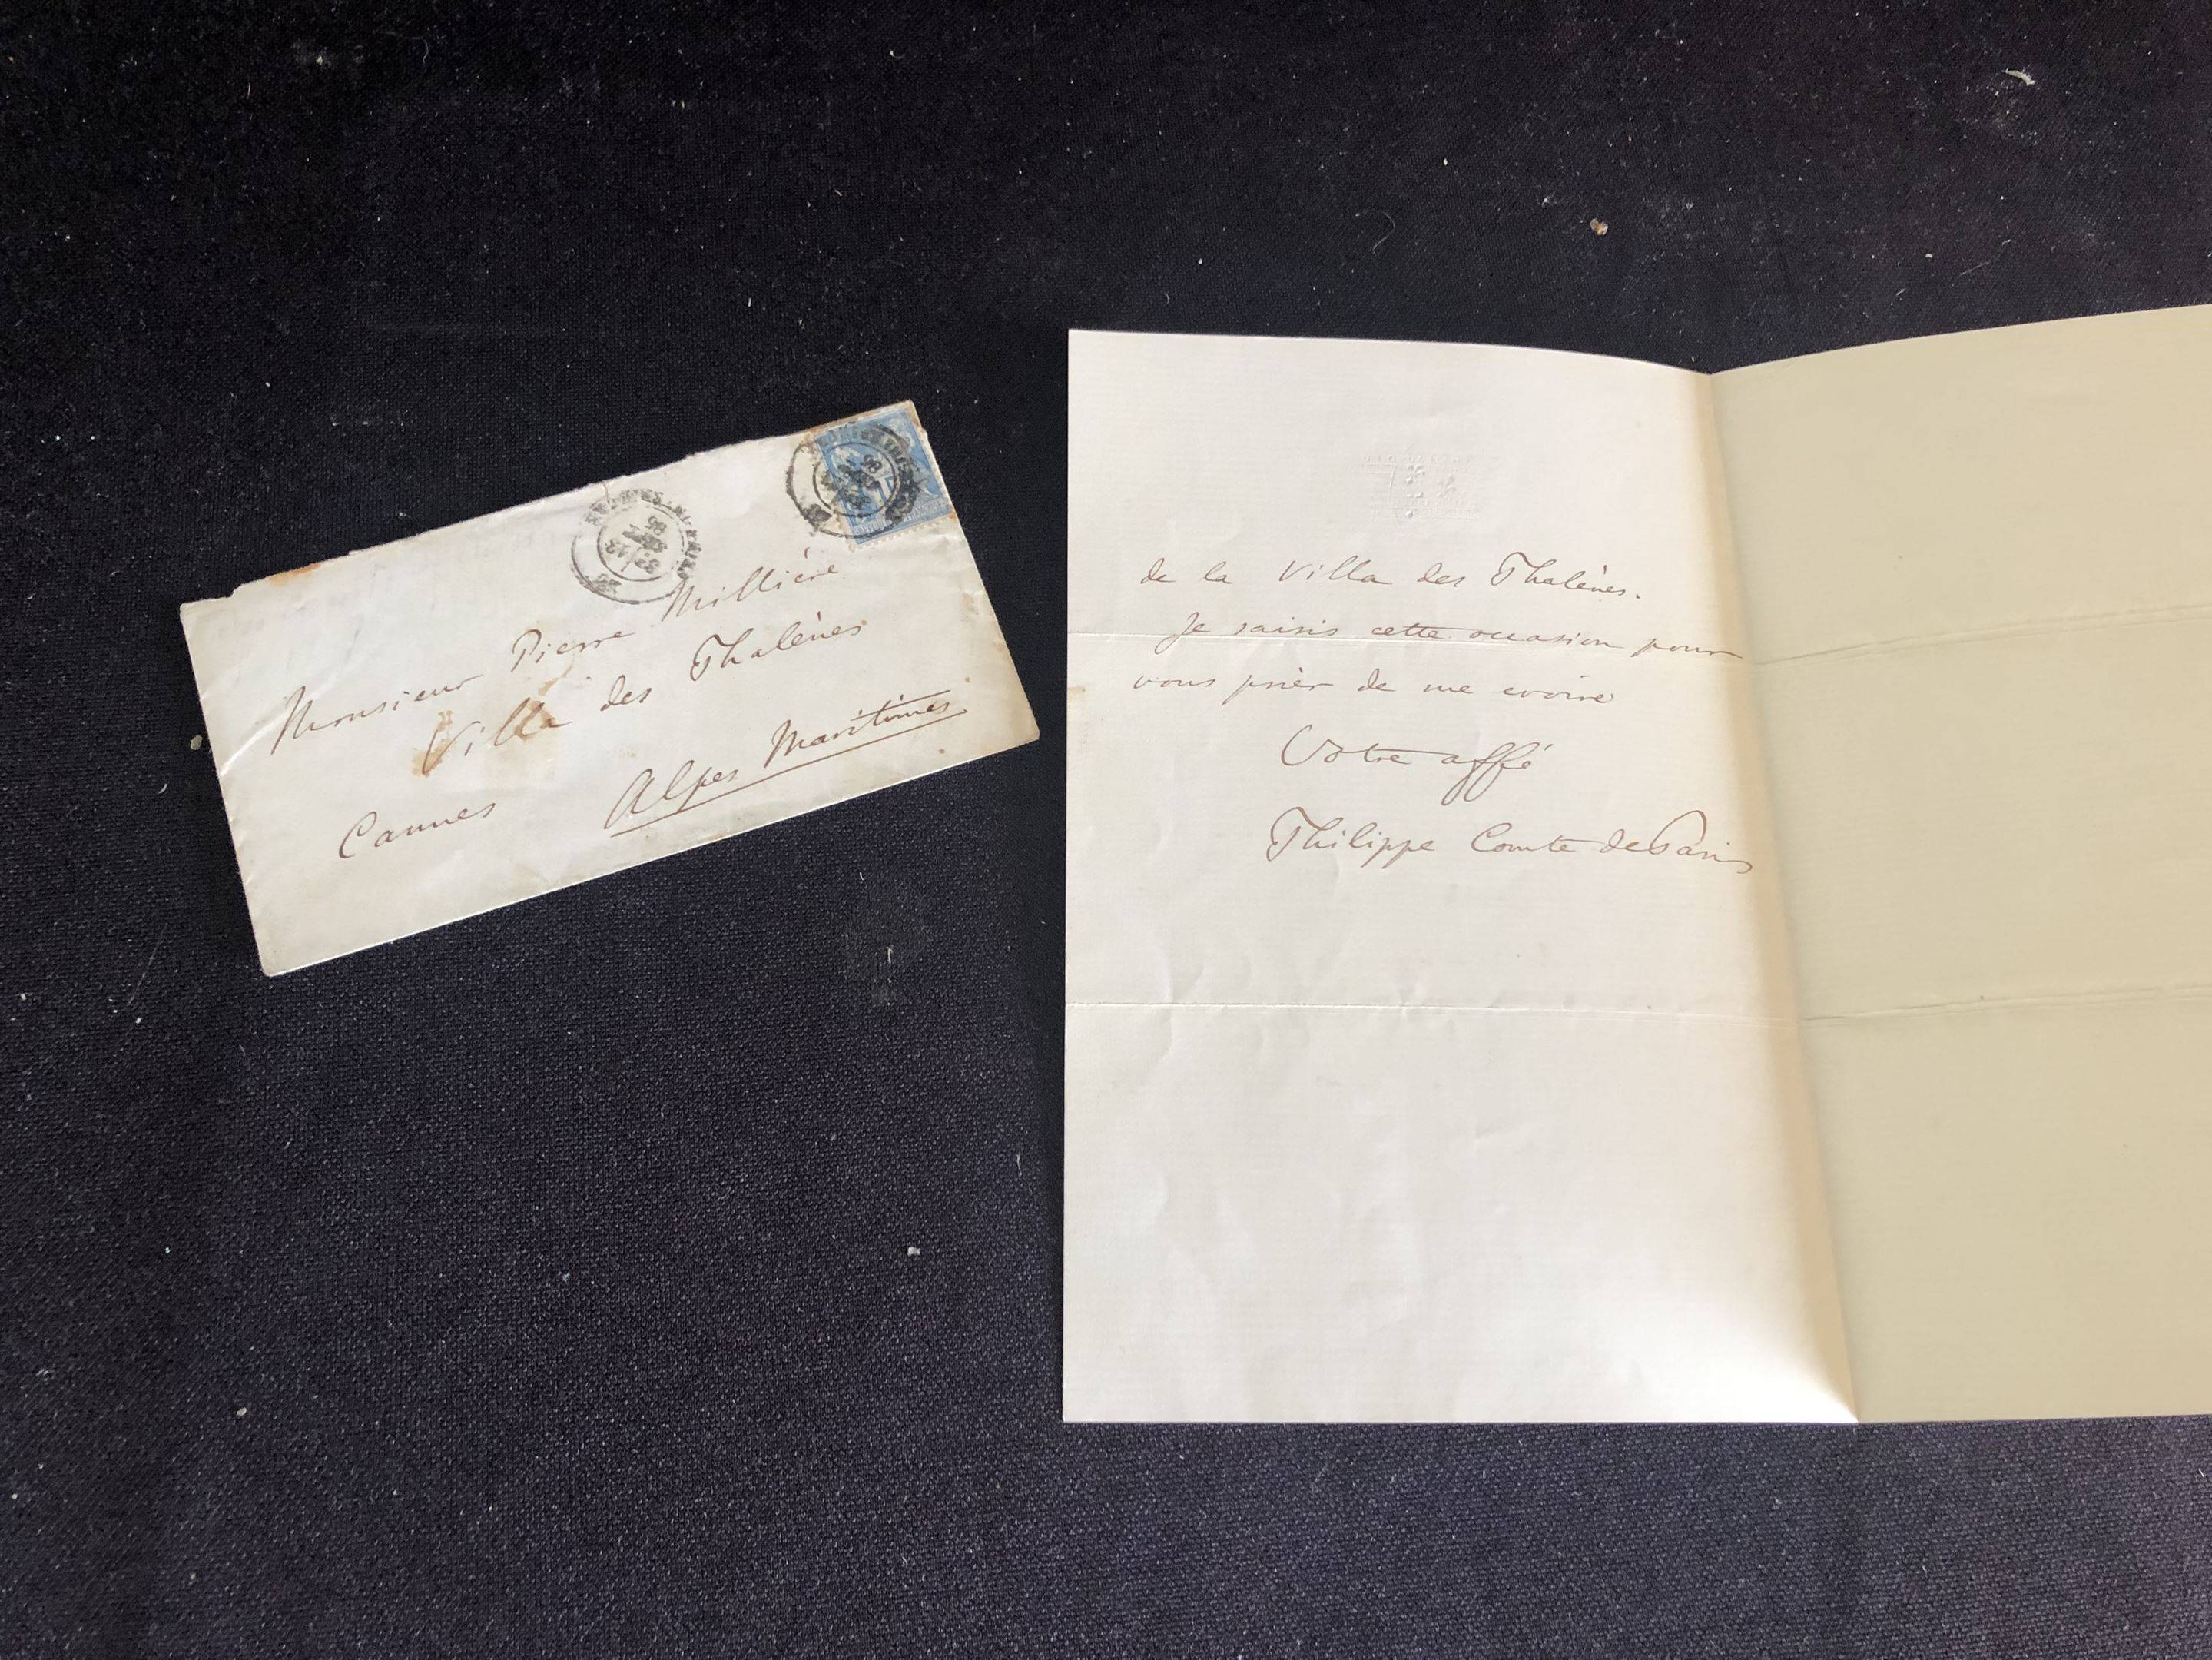 Monsieur Pierre Millière
Villa des Thalènes
Cannes Alpes Maritimes
de la Villa des Thalènes.
Je saisis cette occasion pour
vous prier de me croire
Votre affé
Philippe Comte de Paris